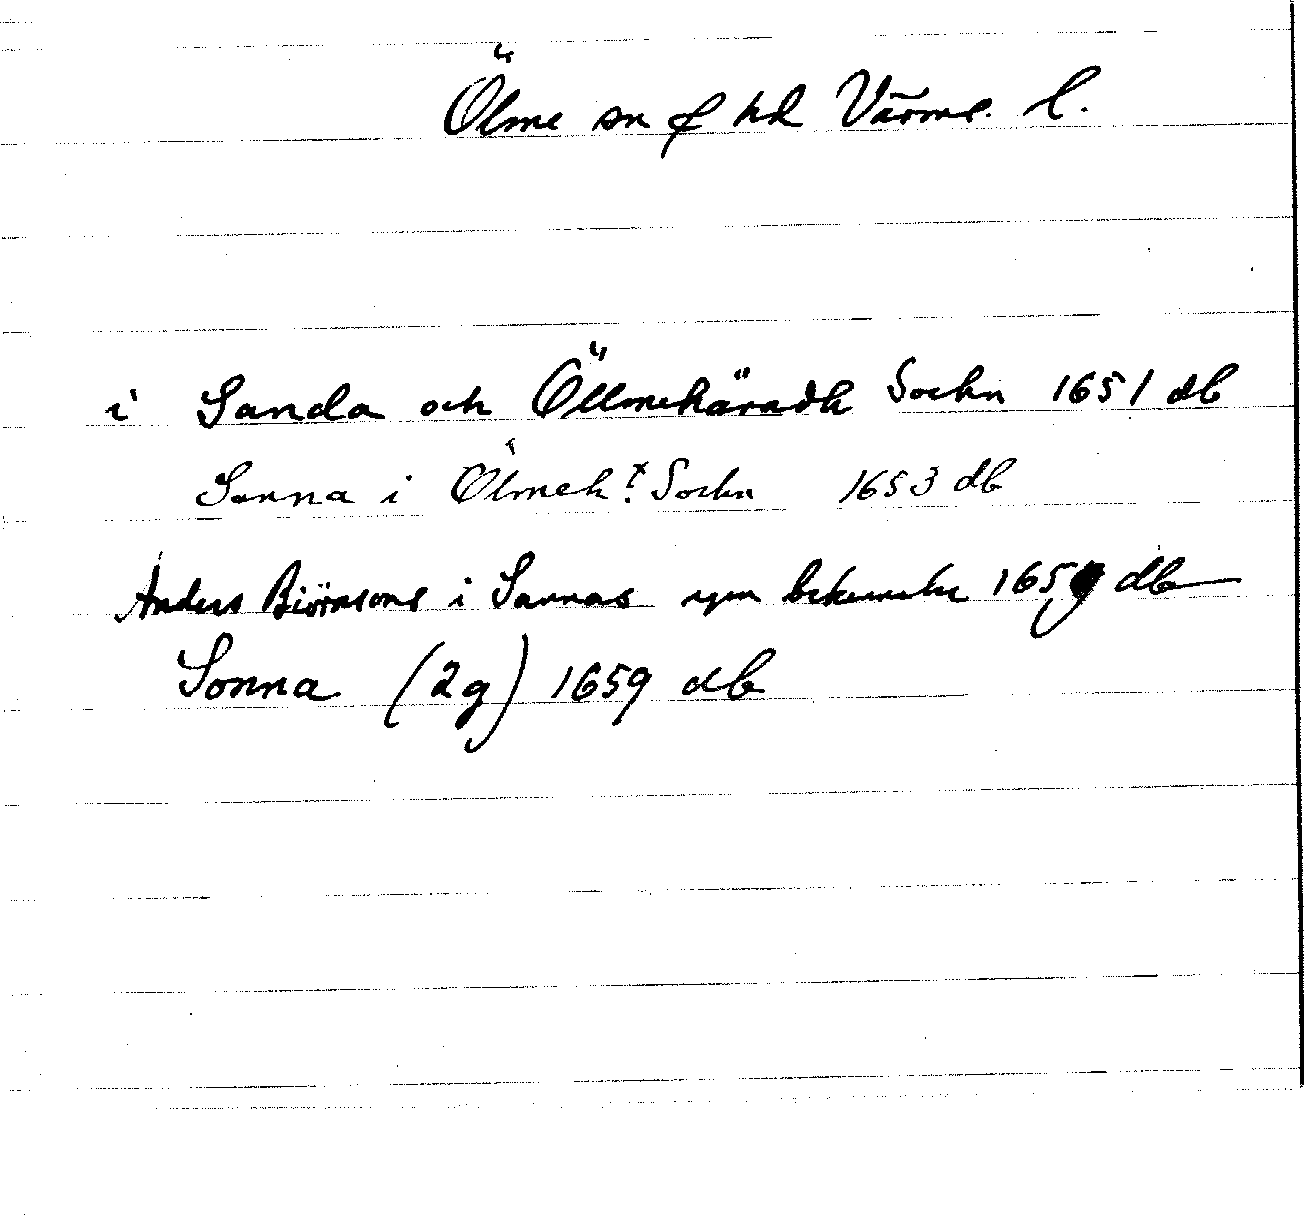 Ölme sn o hd Värml. l.
i Sanda och Öllmehäradh Sochn 1651 db
Sanna i Ölmeh: Sochn 1653 db
Anders Biörnsons i Sannas egen bekennelse 1659 db
Sonna (2g) 1659 db